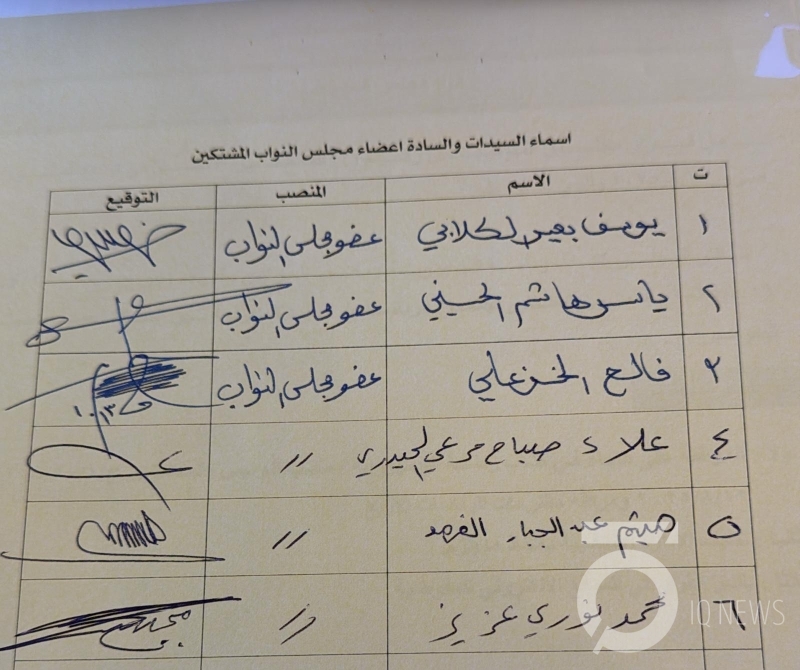 اسماء السيدات والسادة اعضاء مجلس النواب المشتكين
ت الاسم المنصب التوقيع
١ يوسف بعير الكلابي عضو مجلس النواب
٢ ياسر هاشم الحسيني عضو مجلس النواب
٣ فالح الخزعلي عضو مجلس النواب
٤ علاء صباح مرعي الحيدري //
٥ ميثم عبد الجبار الفهد //
٦ محمد نوري عزيز //
IQ NEWS